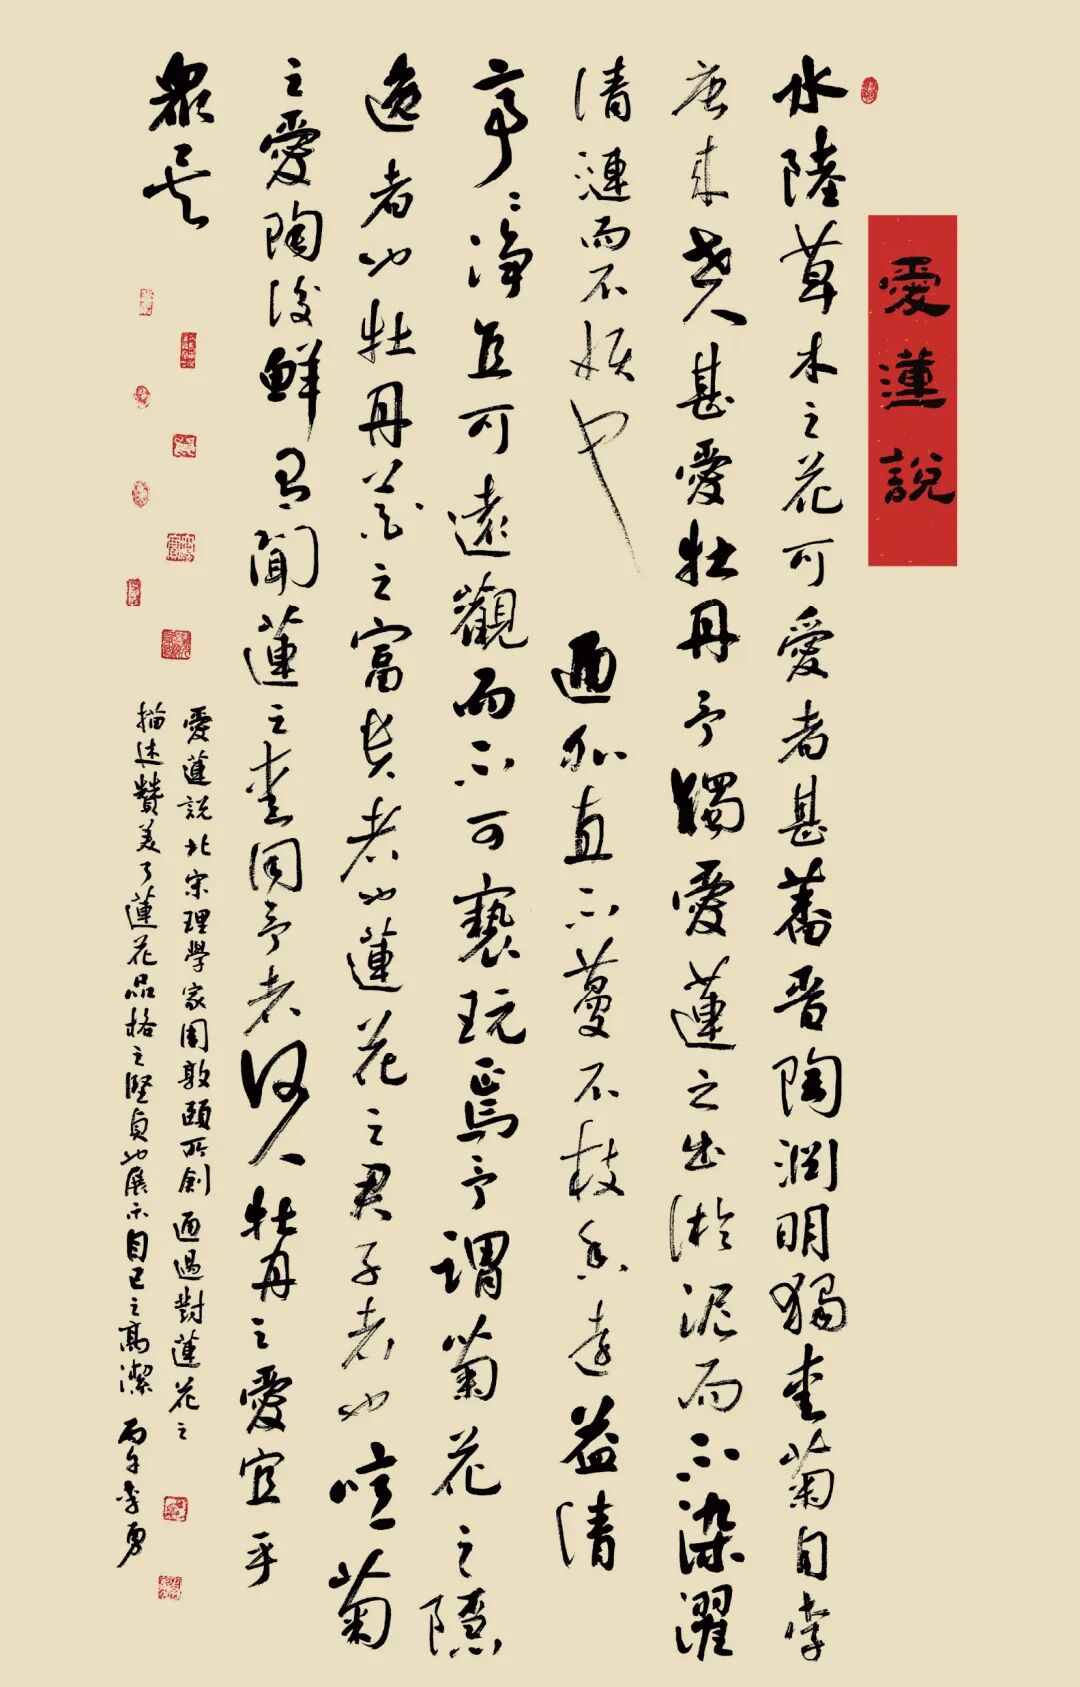 愛蓮說
水陸草木之花可愛者甚蕃晋陶淵明獨愛菊自李
唐来世人甚愛牡丹予獨愛蓮之出淤泥而不染濯
清漣而不妖中通外直不蔓不枝香遠益清
亭〻淨直可遠觀而不可褻玩焉予謂菊花之隱
逸者也牡丹花之富貴者也蓮花之君子者也噫菊
之愛陶後鮮有聞蓮之愛同予者何人牡丹之愛宜乎
眾矣
愛蓮說北宋理學家周敦頤所創通過對蓮花之
描述贊美了蓮花品格之堅貞也展示自己之高潔 丙午李勇